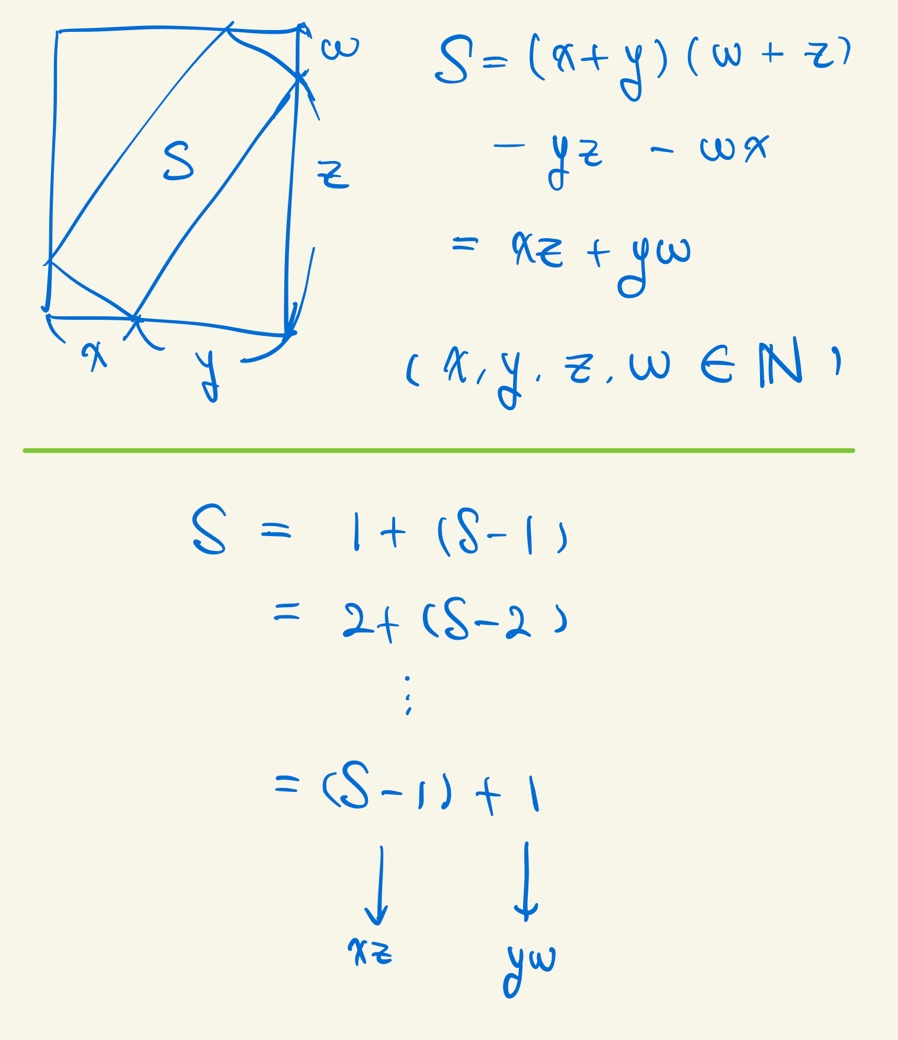 ω
S
z
x
y
S = (x+y)(ω + z)
- yz - ωx
= xz + yω
(x, y, z, ω ∈ ℕ)
S = 1 + (S-1)
= 2 + (S-2)
⋮
= (S-1) + 1
↓ ↓
xz yω